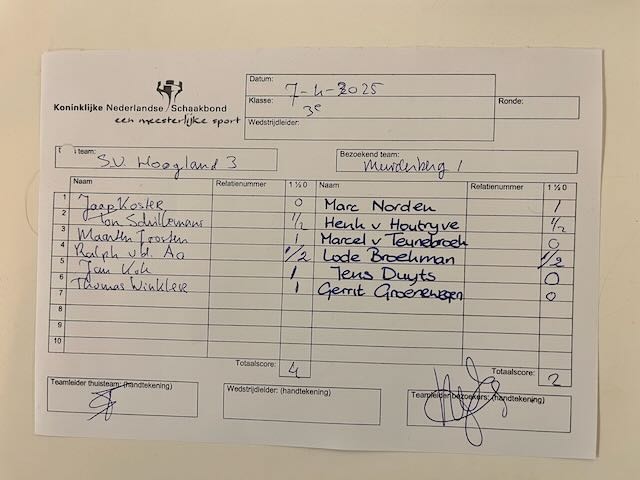 Koninklijke Nederlandse Schaakbond
een meesterlijke sport
Datum: 7-4-2025
Klasse: 3e
Ronde:
Wedstrijdleider:
team: S.V. Hoogland 3
Bezoekend team: Muiderberg 1
Naam Relatienummer 1 ½ 0 Naam Relatienummer 1 ½ 0
1 Jaap Koster 0 Marc Norden 1
2 Ton Schillemans 1/2 Henk v Houtryve 1/2
3 Maarten Joosten 1 Marcel v Teunebroek 0
4 Ralph vd. Aa 1/2 Lode Broekman 1/2
5 Jan Kok 1 Jens Duyts 0
6 Thomas Winkler 1 Gerrit Groenewegen 0
7
8
9
10
Totaalscore: 4 Totaalscore: 2
Teamleider thuisteam: (handtekening)
Wedstrijdleider: (handtekening)
Teamleider bezoekers: (handtekening)